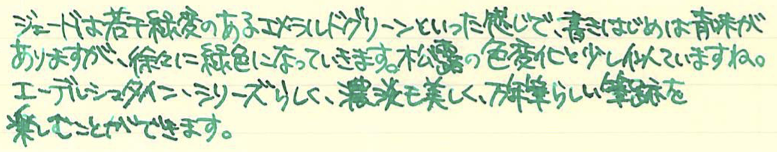 ジェードは若干緑変のあるエメラルドグリーンといった感じで、書きはじめは青味が
ありますが、徐々に緑色になっていきます。松露の色変化と少し似ていますね。
エーデルシュタイン、シリーズらしく、濃淡も美しく、万年筆らしい筆跡を
楽しむことができます。